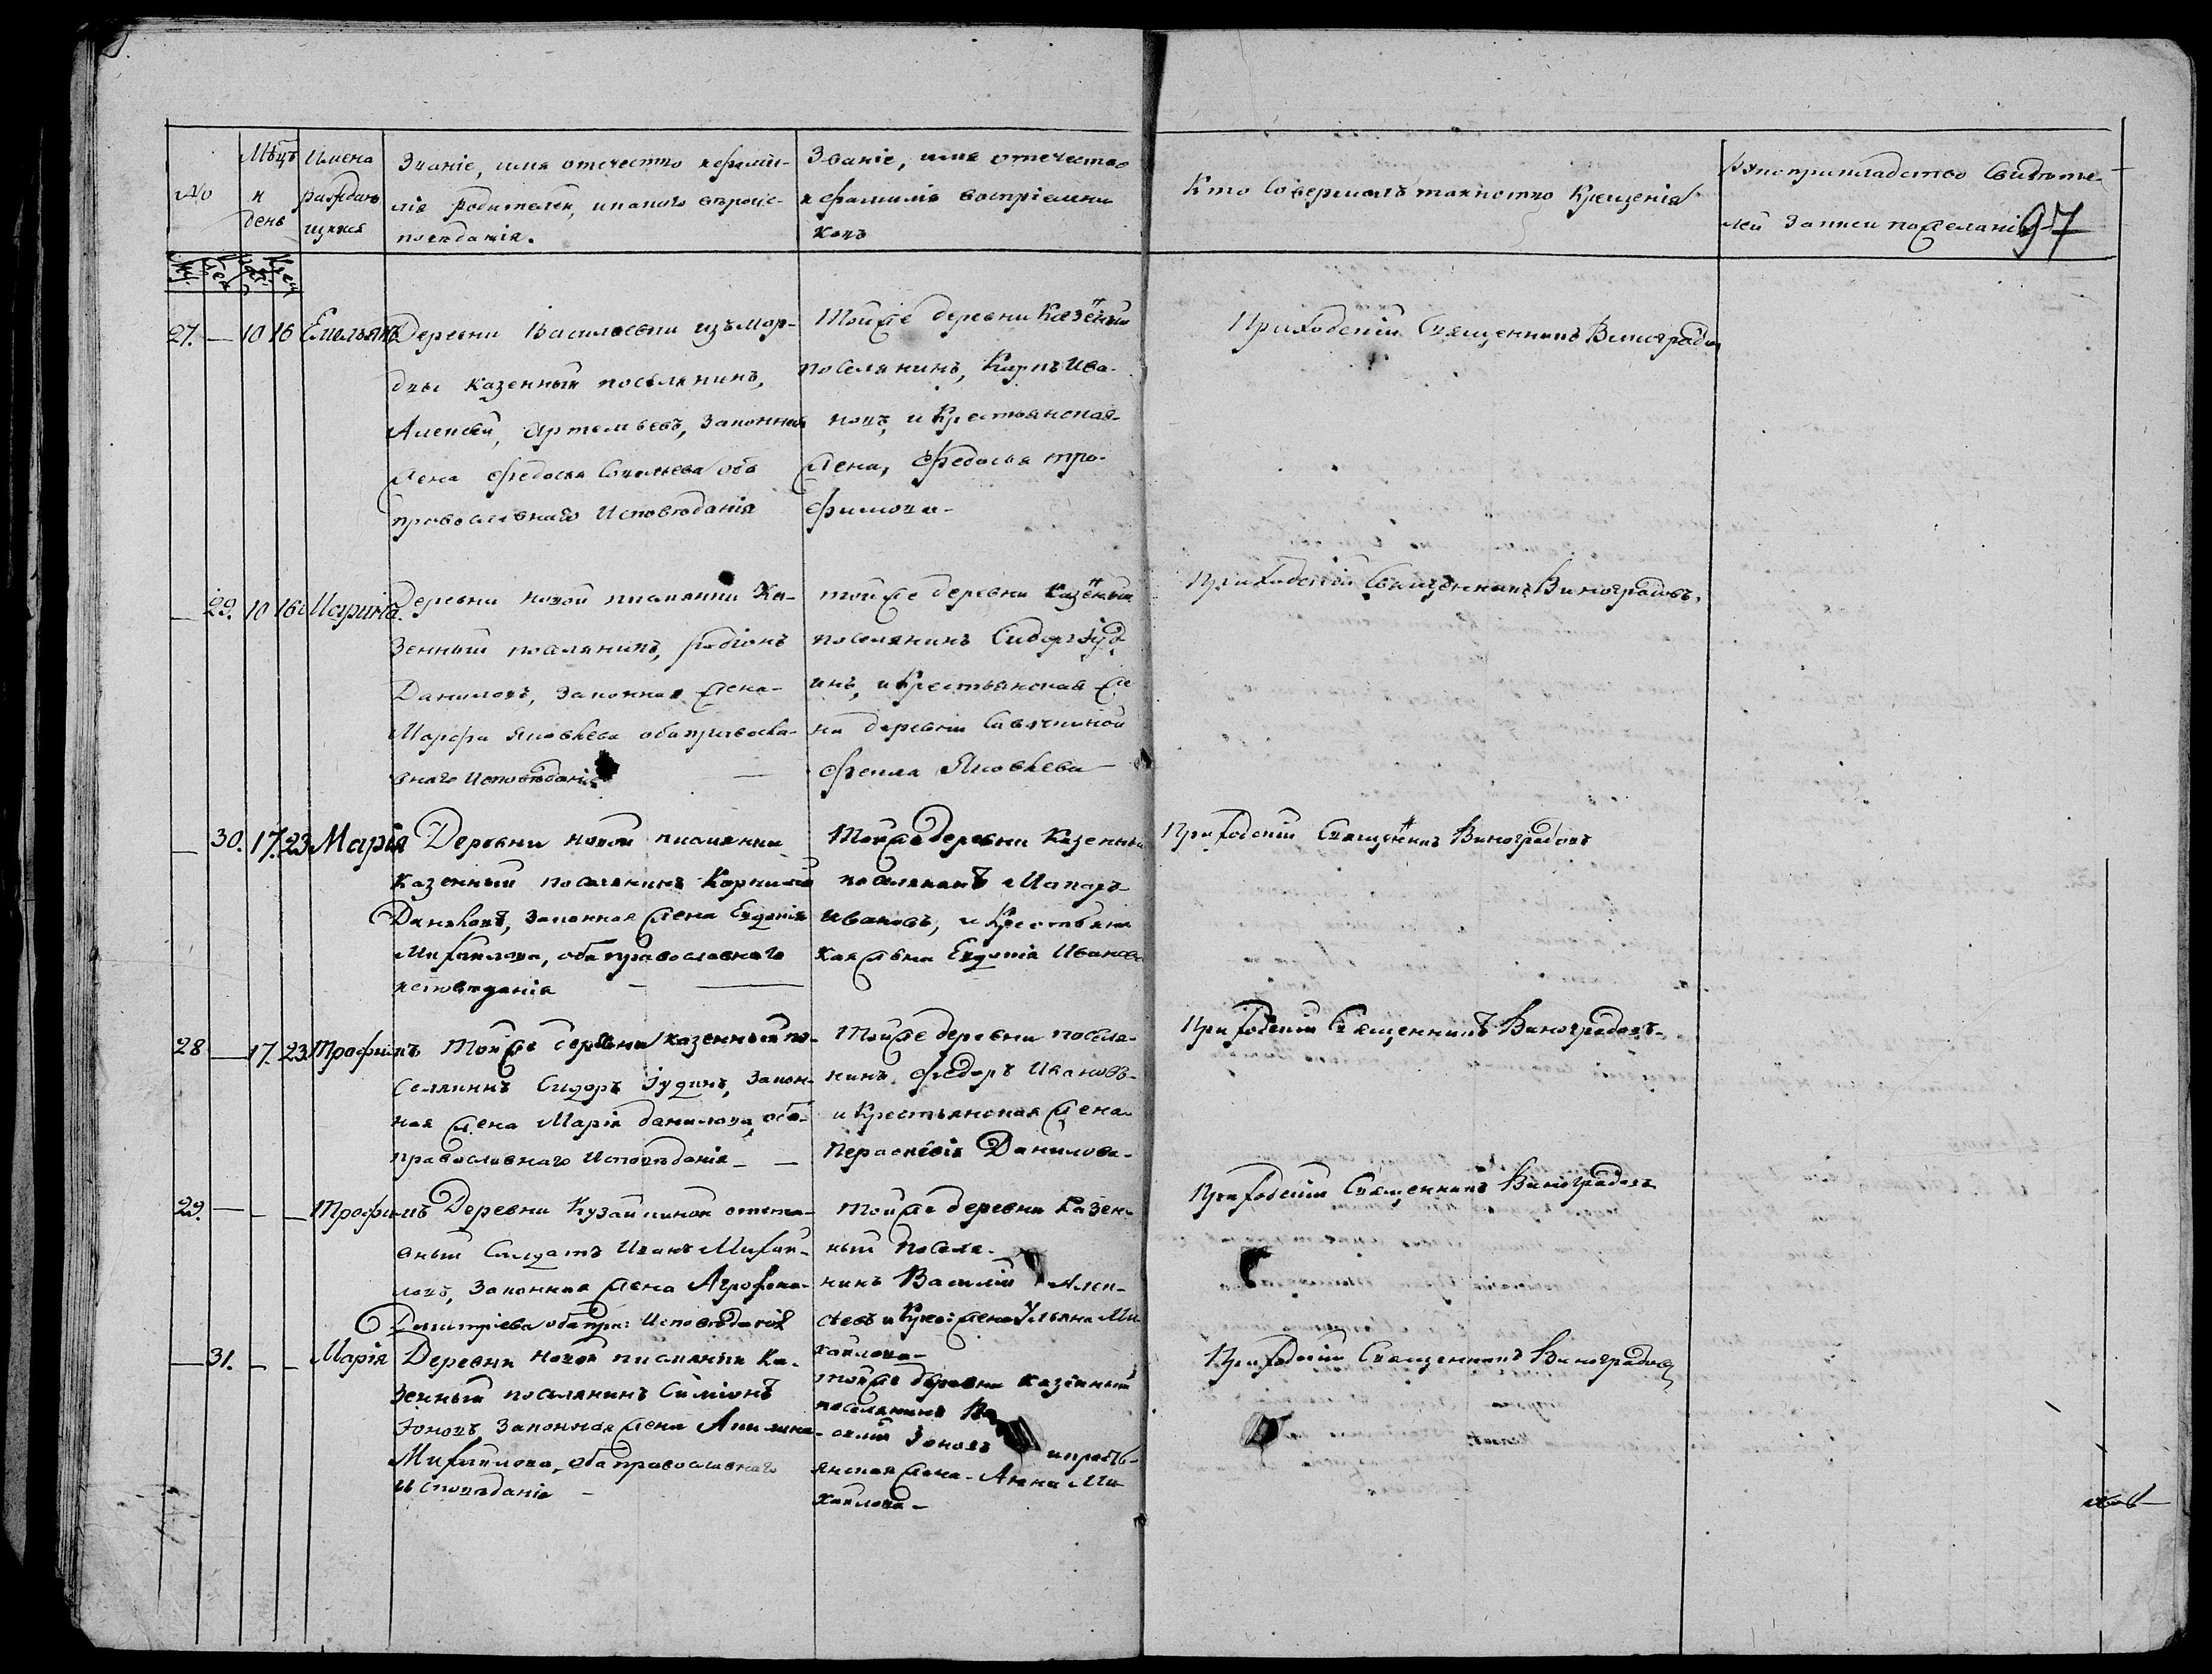 №
Мѣцъ и день
Имена раждающихся
Званіе, имя отечество и фамилія родителей, и какого вѣроисповѣданія.
Званіе, имя отечество и фамилія воспріемниковъ
Кто совершалъ таинство Крещенія
Рукоприкладство Свидѣтелей записи по желанію
97
27. — 10 16 Емельянъ
Деревни Васильевки изъ мордвы казенный поселянинъ,
Алексей Артемьевъ, Законная
жена Федосья Савельева оба
православнаго Исповѣданія
Той же деревни Казенный
поселянинъ, Карпъ Ива-
новъ, и Крестьянская
жена, Федосья Тро-
фимова-
Приходскій Священникъ Виноградовъ
— 29. 10 16 Ирина
Деревни новой письмянки Ка-
зенный поселянинъ, Родіонъ
Даниловъ, Законная жена-
Марфа Яковлева оба правосла-
внаго Исповѣданія
той же деревни Казеный
поселянинъ Сидоръ Іуд
инъ, и Крестьянская же
на деревни
Фекла Яковлева
Приходскій Священникъ Виноградовъ.
— 30. 17. 23 Марія
Деревни новой писмянки
Казенный поселянинъ Корнилій
Даниловъ, Законная жена Евдокія
Михайлова, оба православнаго
исповѣданія —
Той же деревни Казенный
поселянинъ Макаръ
Ивановъ, и Крестьянс
кая жена Евдокія Иванова
Приходскій Священникъ Виноградовъ
28 — 17. 23 Трофимъ
Той же деревни казенный по-
селянинъ Сидоръ Іудинъ, Закон-
ная жена Марія Данилова, оба-
православнаго Исповѣданія — —
Той же деревни поселя-
нинъ Федоръ Ивановъ-
и Крестьянская жена-
Параскевія Данилова-
Приходскій Священникъ Виноградовъ-
29. — — — Трофимъ
Деревни Кузайкиной отста-
вный Салдатъ Иванъ Михай-
ловъ, Законная жена Агрофена-
Димитріева оба пра: Исповѣданія
Той же деревни Казен-
ный поселя-
нинъ Василій Алек-
сѣевъ и Крес: жена Ульяна Ми
хайлова-
Приходскій Священникъ Виноградовъ
— 31. — — Марія
Деревни новой писмянки Ка-
зенный поселянинъ Симіонъ
Іоновъ, Законная жена Акилина
Михайлова, оба православнаго
Исповѣданія —
Той же деревни казенный
поселянинъ Ва
силій Іоновъ и кресть-
янская жена- Анна Ми
хайлова-
Приходскій Священникъ Виноградовъ